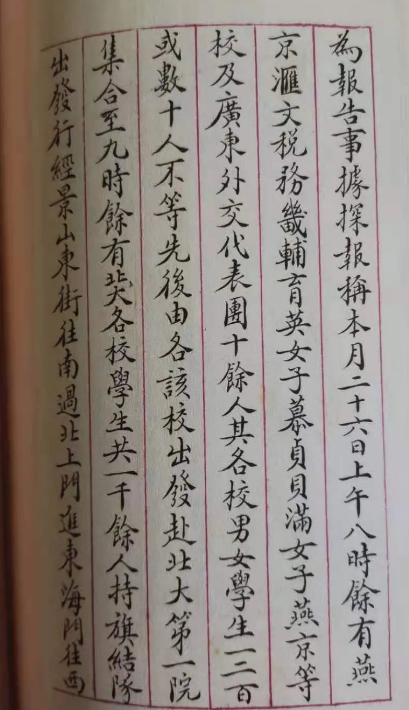 為報告事據探報稱本月二十六日上午八時餘有燕
京滙文稅務畿輔育英女子慕貞貝滿女子燕京等
校及廣東外交代表團十餘人其各校男女學生一二百
或數十人不等先後由各該校出發赴北大第一院
集合至九時餘有北大各校學生共一千餘人持旗結隊
出發行經景山東街往南過北上門進東海門往西